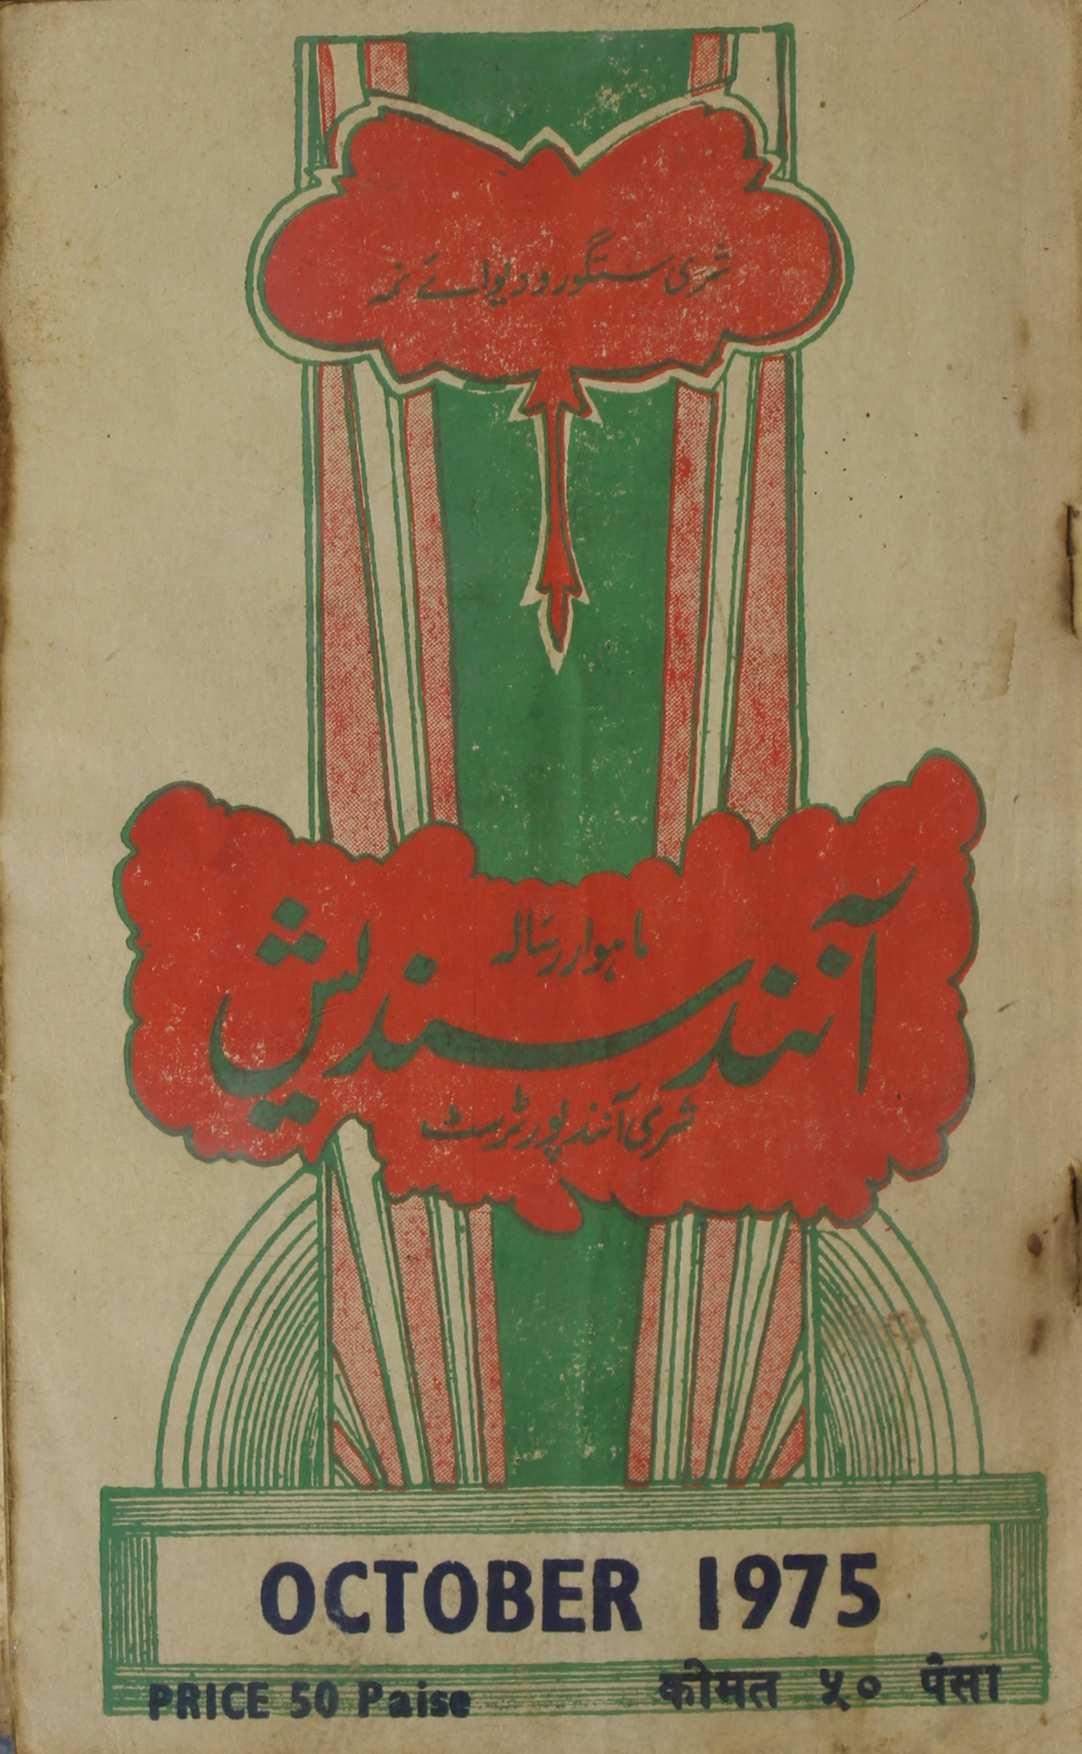 شری ستگورو دیوائے نمہ
ماہوار رسالہ
آنند سندیش
شری آنند پور ٹرسٹ
OCTOBER 1975
PRICE 50 Paise
कीमत ५० पैसा